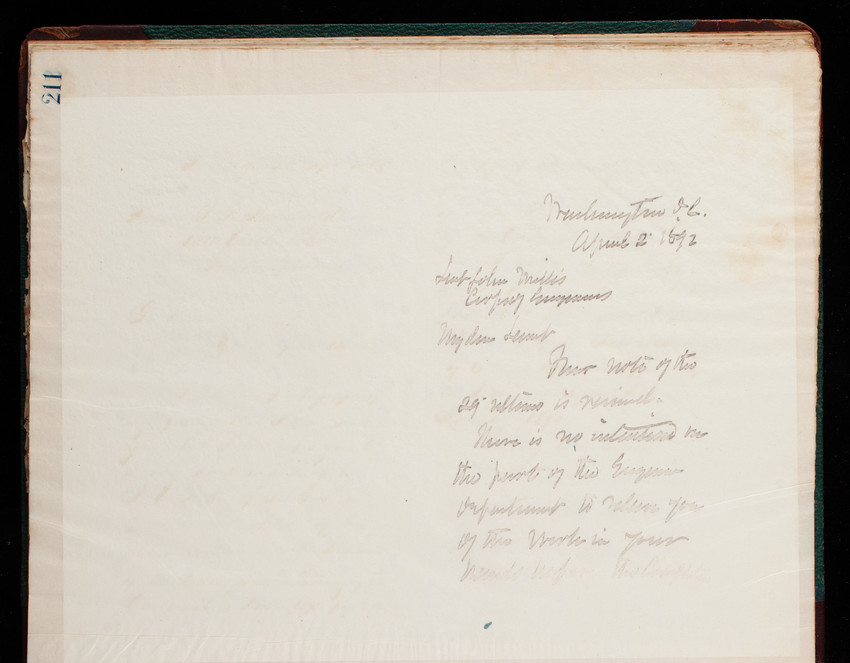 211
Washington D.C.
April 2 1892
Lieut John Millis
Corps of Engineers
My dear Lieut
Your note of the
29 ultimo is received.
There is no intention on
the part of the Engineer
Department to relieve you
of the work in your
the